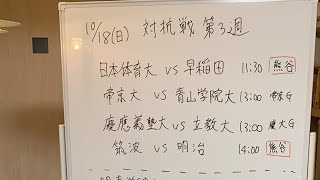 10/18(日) 対抗戦 第3週
日本体育大 vs 早稲田 11:30 熊谷
帝京大 vs 青山学院大 13:00 帝京G
慶應義塾大 vs 立教大 13:00 慶大G
筑波 vs 明治 14:00 熊谷